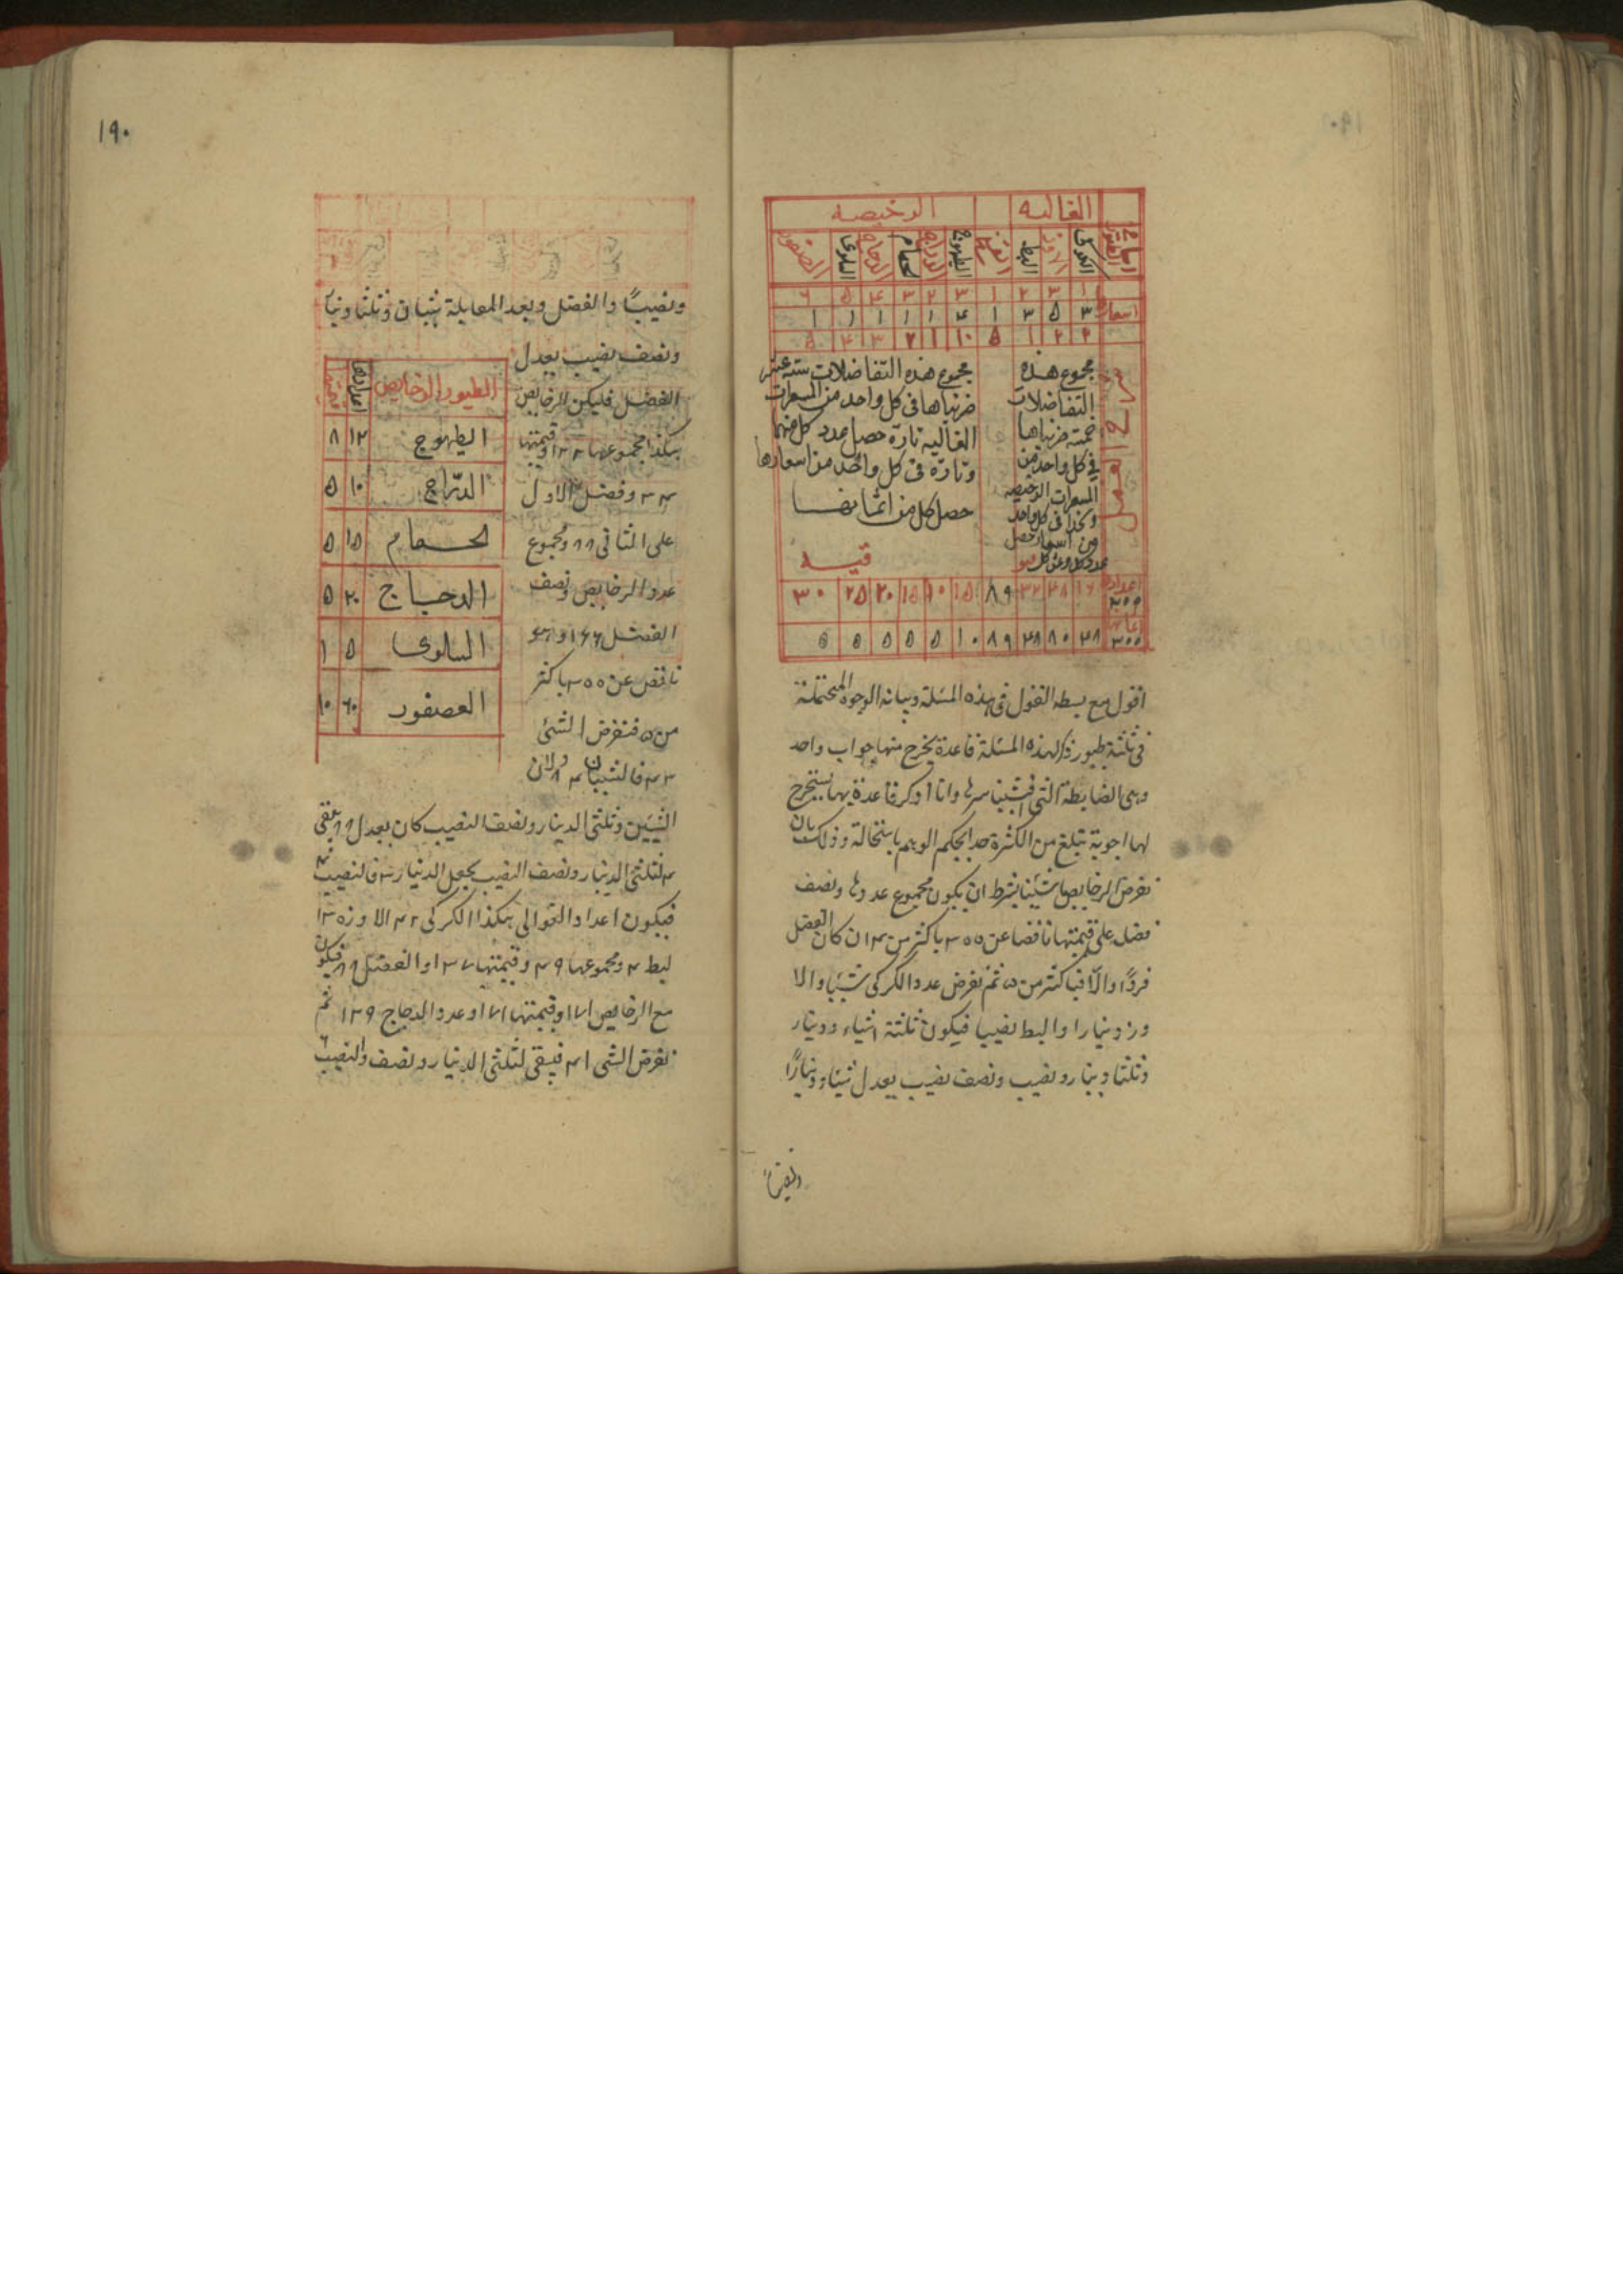 الغالية الرخيصة
الكركى الاوز البط الطيهوج الدراج الحمام الدجاج السلوى العصفور
١ ٣ ٢ ١ ٣ ٢ ٣ ٤ ٥ ٦
اسعار ٣ ٥ ٣ ١ ٤ ١ ١ ١ ١ ١
٢ ٢ ١ ٥ ١٠ ١ ٢ ٣ ٤ ٥
مجموع هذه
التفاضلات
خمسة ضربناها
في كل واحد من
المسعرات الرخيصه
وكذا في كل واحد
من اسعار حصل
عدد كل وثمن كل
مجموع هذه التفاضلات ستة عشر
ضربناها في كل واحد من المسعرات
الغالية تارة حصل عدد كل منها
وتارة فى كل واحد من اسعارها
حصل كل من اثمانها
اعداد ٣٠٠ ١٦ ٤٨ ٣٢ ٨٩ ١٥ ١٠ ١٥ ٢٠ ٢٥ ٣٠
٣٠٠ ٤٨ ٨٠ ٤٨ ٨٩ ١٠ ٥ ٥ ٥ ٥ ٥
اقول مع بسطه القول فى هذه المسئلة وبيانه الوجوه المحتملة
فى ثلثة طيور ذكر لهذه المسئلة قاعدة يخرج منها جواب واحد
وهى الضابطة التى سرها وانا اذكر قاعدة بها يستخرج
لها اجوبة تبلغ من الكثرة حدا يحكم الوهم باستحالة وذلك بان
نفرض الرخايص شيئا بشرط ان يكون مجموع عددها ونصف
فضل على قيمتها ناقصا عن ٣٠٠ باكثر من ٣ ان كان الفضل
فردا والا فباكثر من ٥ ثم نفرض عدد الكركى شيئا والا
وز دينارا والبط نصيبا فيكون ثلثة اشياء ودينار
وثلثا دينار ونصيب ونصف نصيب يعدل شيئا ودينارا
ونصيبا
١٩٠
ونصيبا والفضل وبعد المقابلة شيئان وثلثا دينار
ونصف نصيب يعدل
الفضل فليكن الرخايص
هكذا مجموعها ١٢٢ وقيمتها
٣٤ وفضل الاول
على الثانى ٨٨ ومجموع
عدد الرخايص ونصف
الفضل ١٦٦ وهو
ناقص عن ٣٠٠ باكثر
من ٥ فنفرض الشئ
٤٢ فالشيئان ٨٤ ولان
الطيور الرخايص اعدادها قيمتها
الطيهوج ١٢ ٨
الدراج ١٠ ٥
الحمام ١٥ ٥
الدجاج ٢٠ ٥
السلوى ٥ ١
العصفور ٦٠ ١٠
الشيئين وثلثى الدينار ونصف النصيب كان يعدل ٨٨ يبقى
٤ لثلثى الدينار ونصف النصيب يجعل الدينار ٣ فالنصيب ٤
فيكون اعداد الغوالى هكذا الكركى ٤٢ الاوز ٣
البط ٤ ومجموعها ٤٩ وقيمتها ١٣٧ والفضل ٨٨ فيكون
مع الرخايص ١٧١ وقيمتها ١٧١ وعدد الدجاج ١٢٩ ثم
نفرض الشى ٤١ فيبقى لثلثى الدينار ونصف والنصيب ٦